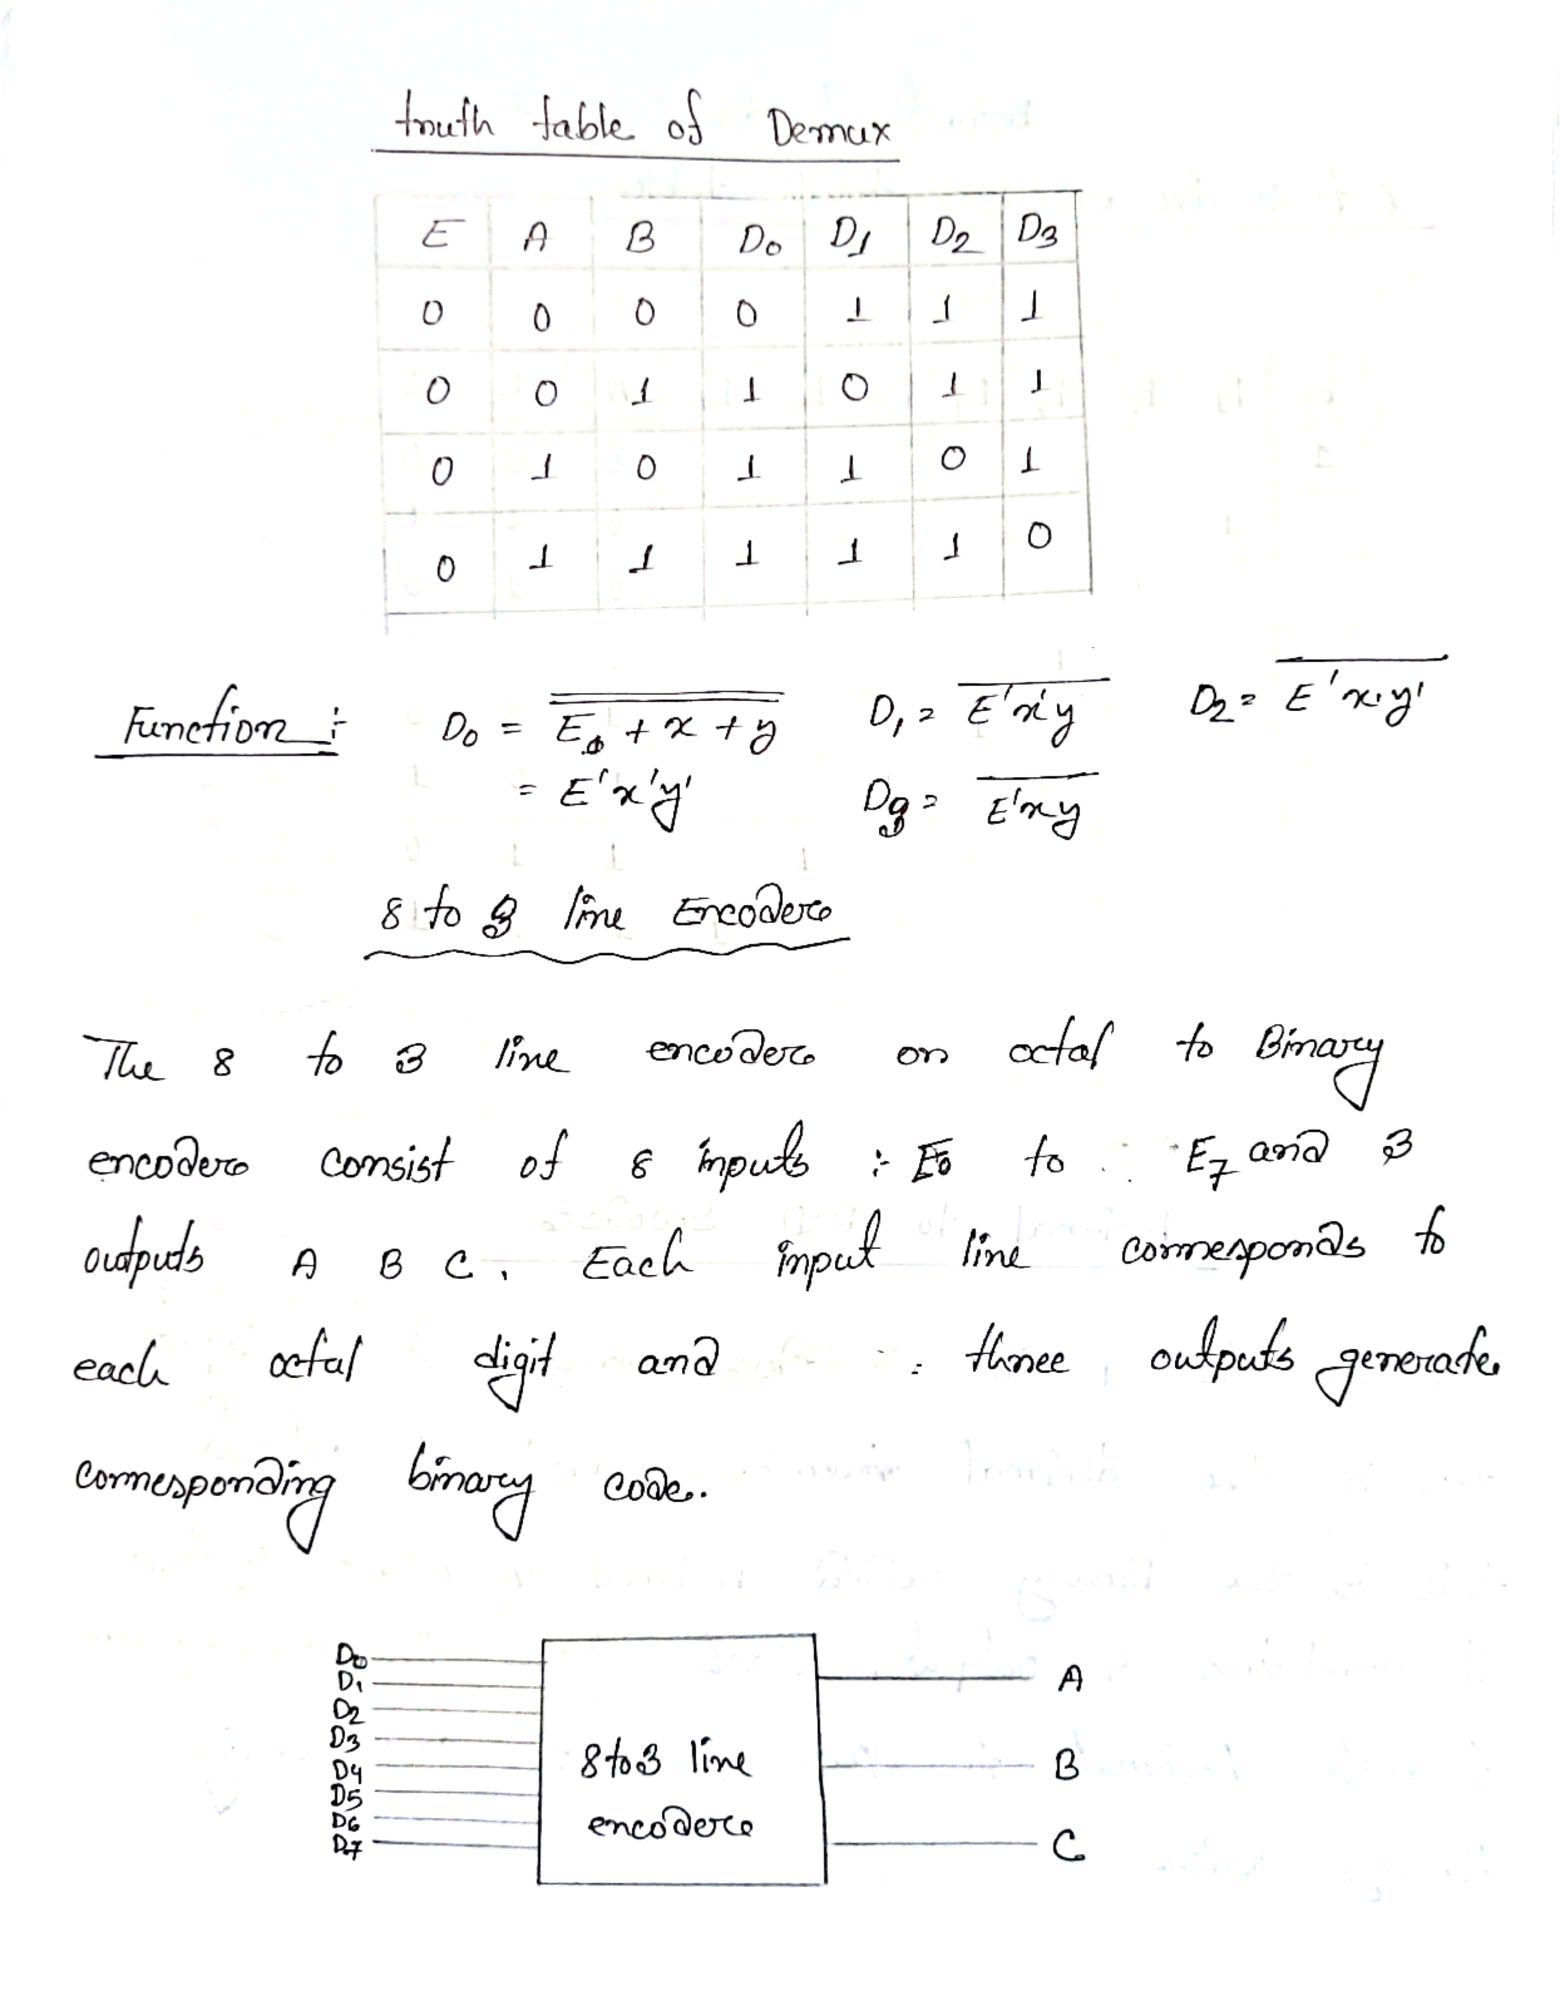 truth table of Demux
E A B D0 D1 D2 D3
0 0 0 0 1 1 1
0 0 1 1 0 1 1
0 1 0 1 1 0 1
0 1 1 1 1 1 0
Function :- D0 = E0 + x + y D1 = E'x'y D2 = E'x.y'
= E'x'y' D3 = E'xy
8 to 3 line Encoder
The 8 to 3 line encoder or octal to Binary
encoder consist of 8 inputs :- E0 to E7 and 3
outputs A B C. Each input line corresponds to
each octal digit and three outputs generate
corresponding binary code.
D0
D1
D2
D3
D4
D5
D6
D7
8 to 3 line
encoder
A
B
C